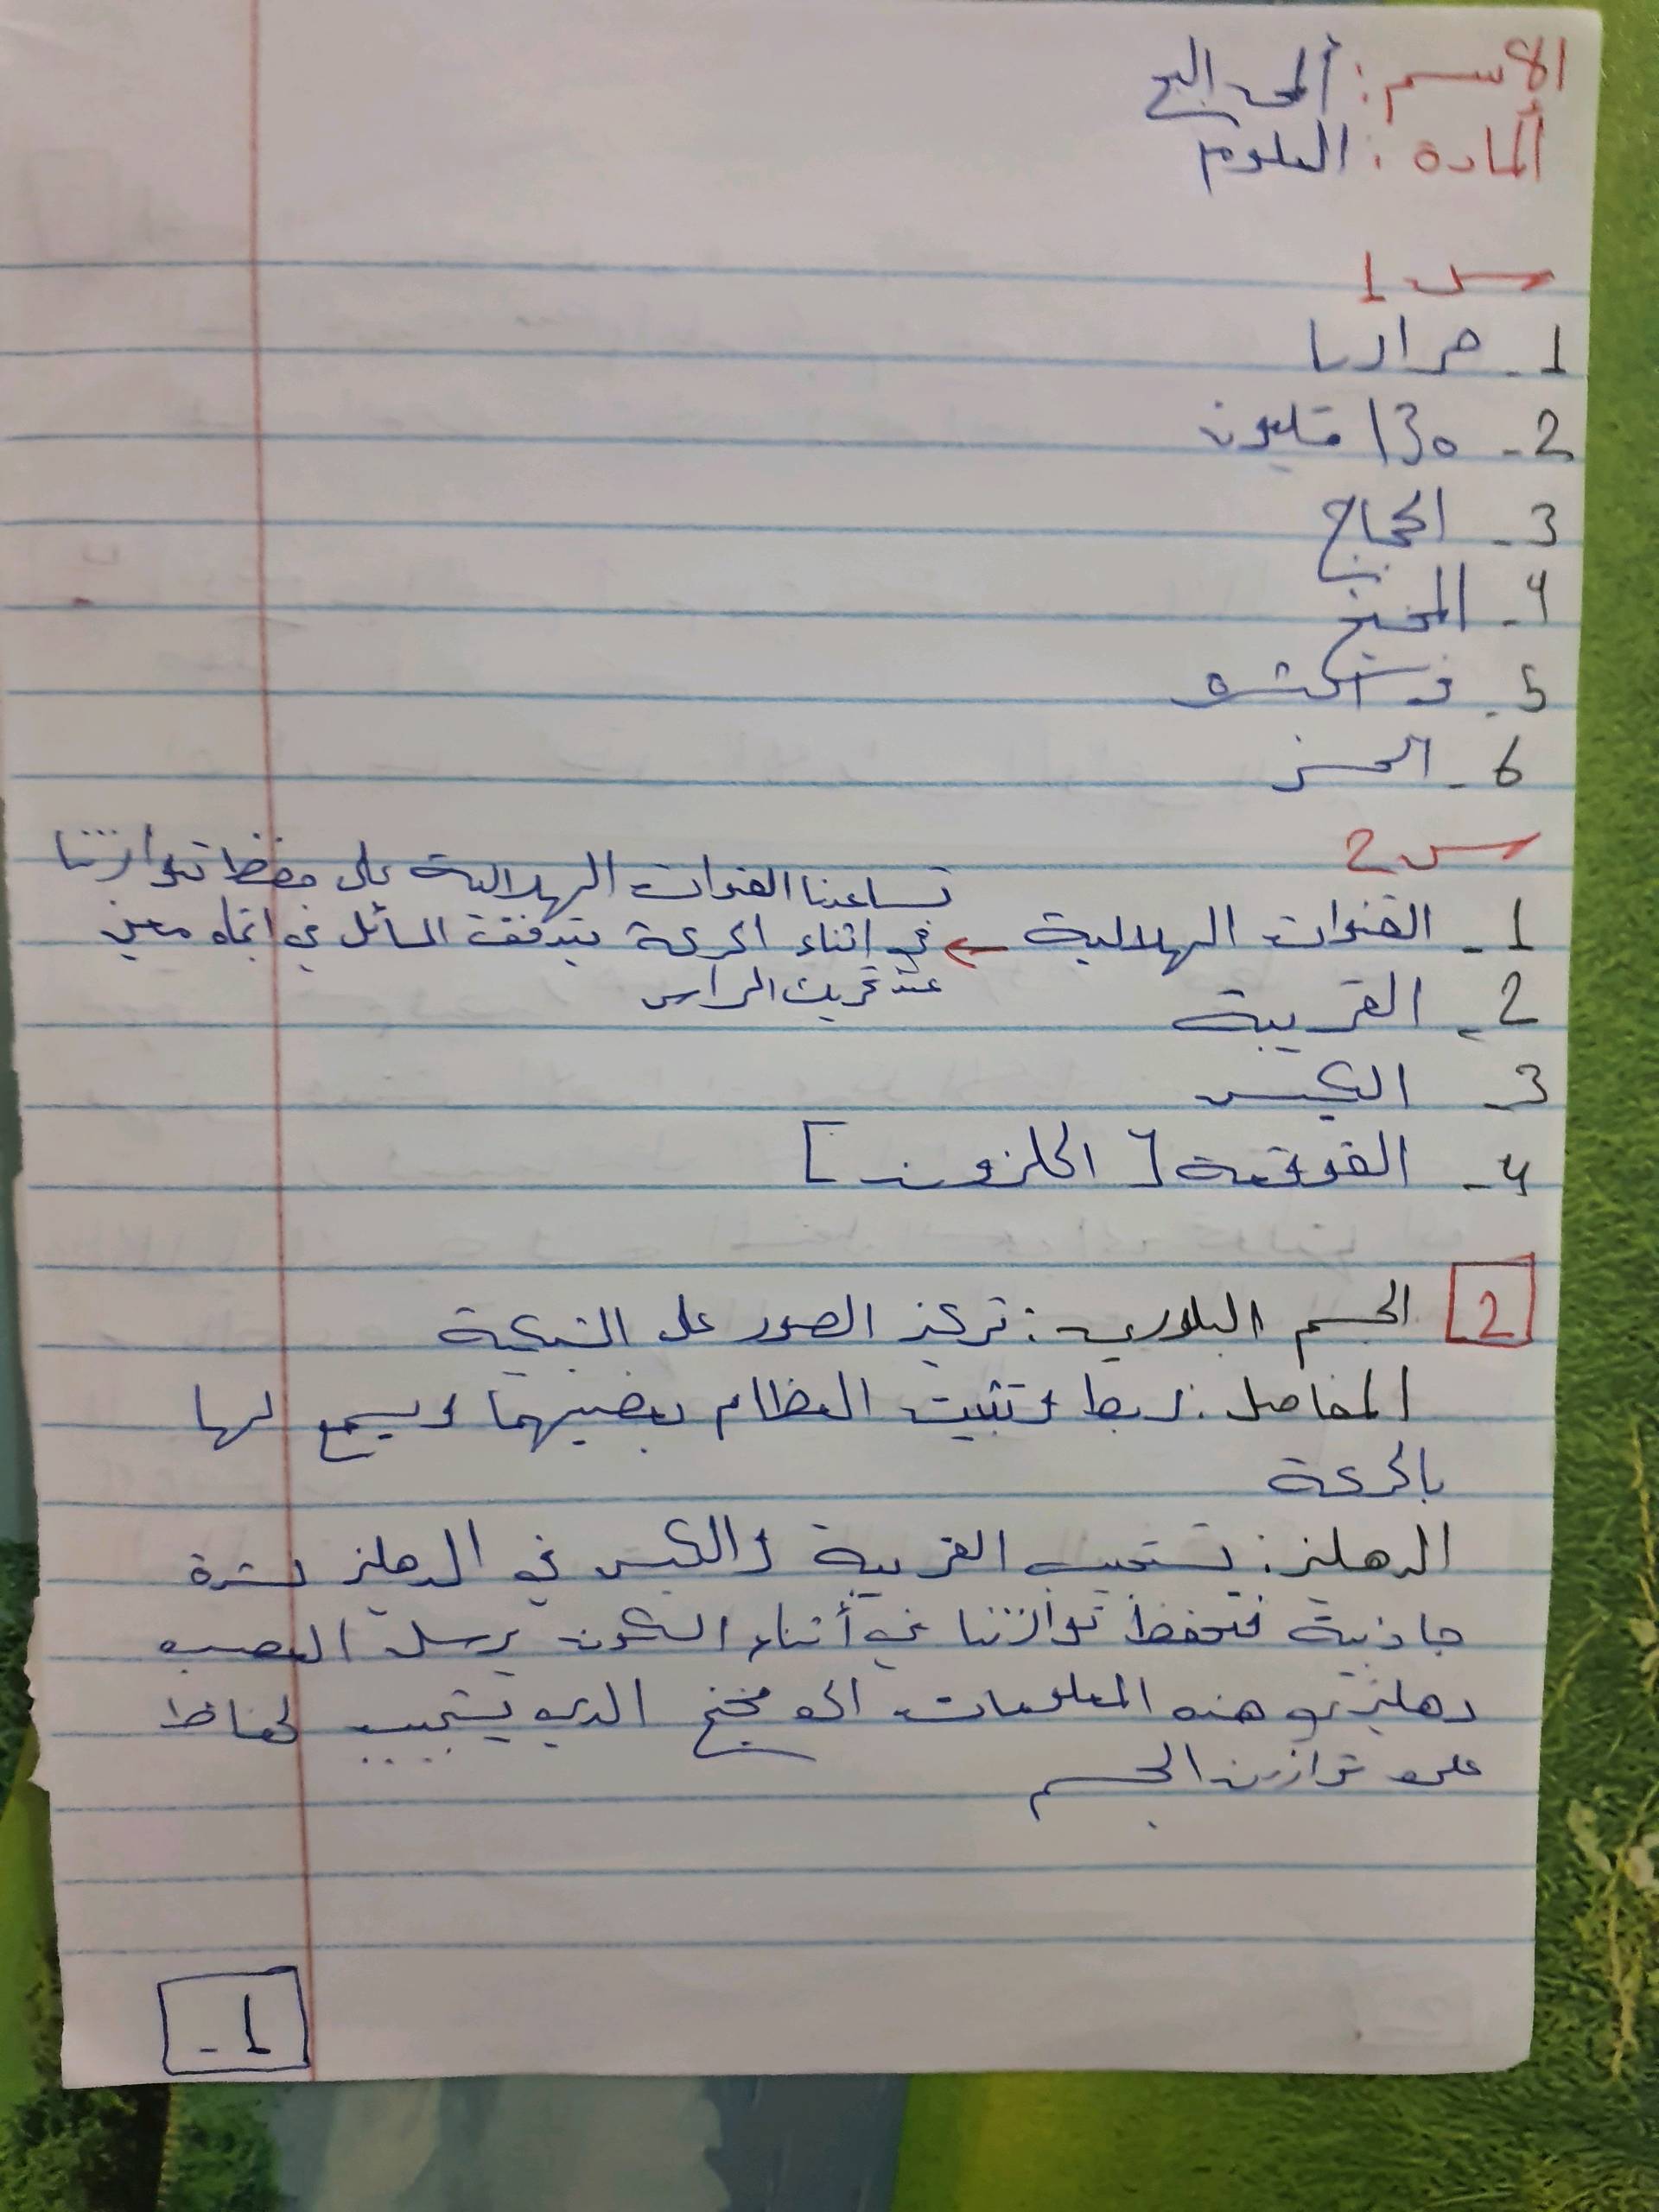 الاسم: ألمى البج
المادة: العلوم
س 1
1- مرارنا
2- 130 مليون
3- الحجاج
4- المخيخ
5-
6- الخبز
س 2
تساعدنا القنوات الهلالية على حفظ توازننا
1- القنوات الهلالية ← في اثناء الحركة يتدفق السائل في اتجاه معين
عند تحريك الراس
2- القريبة
3- الكيس
4- القوقعة [الحلزون]
2 الجسم البلوري: تركيز الصور على الشبكية
المفاصل: ربط وتثبيت العظام ببعضهما ويسمح لها
بالحركة
الدهليز: تستجيب القريبة والكيس في الدهليز لشدة
جاذبية فتحفظ توازننا في أثناء السكون يرسل العصب
دهليزي هذه المعلومات الى مخيخ الذي يستجيب لحفاظ
على توازن الجسم
1-